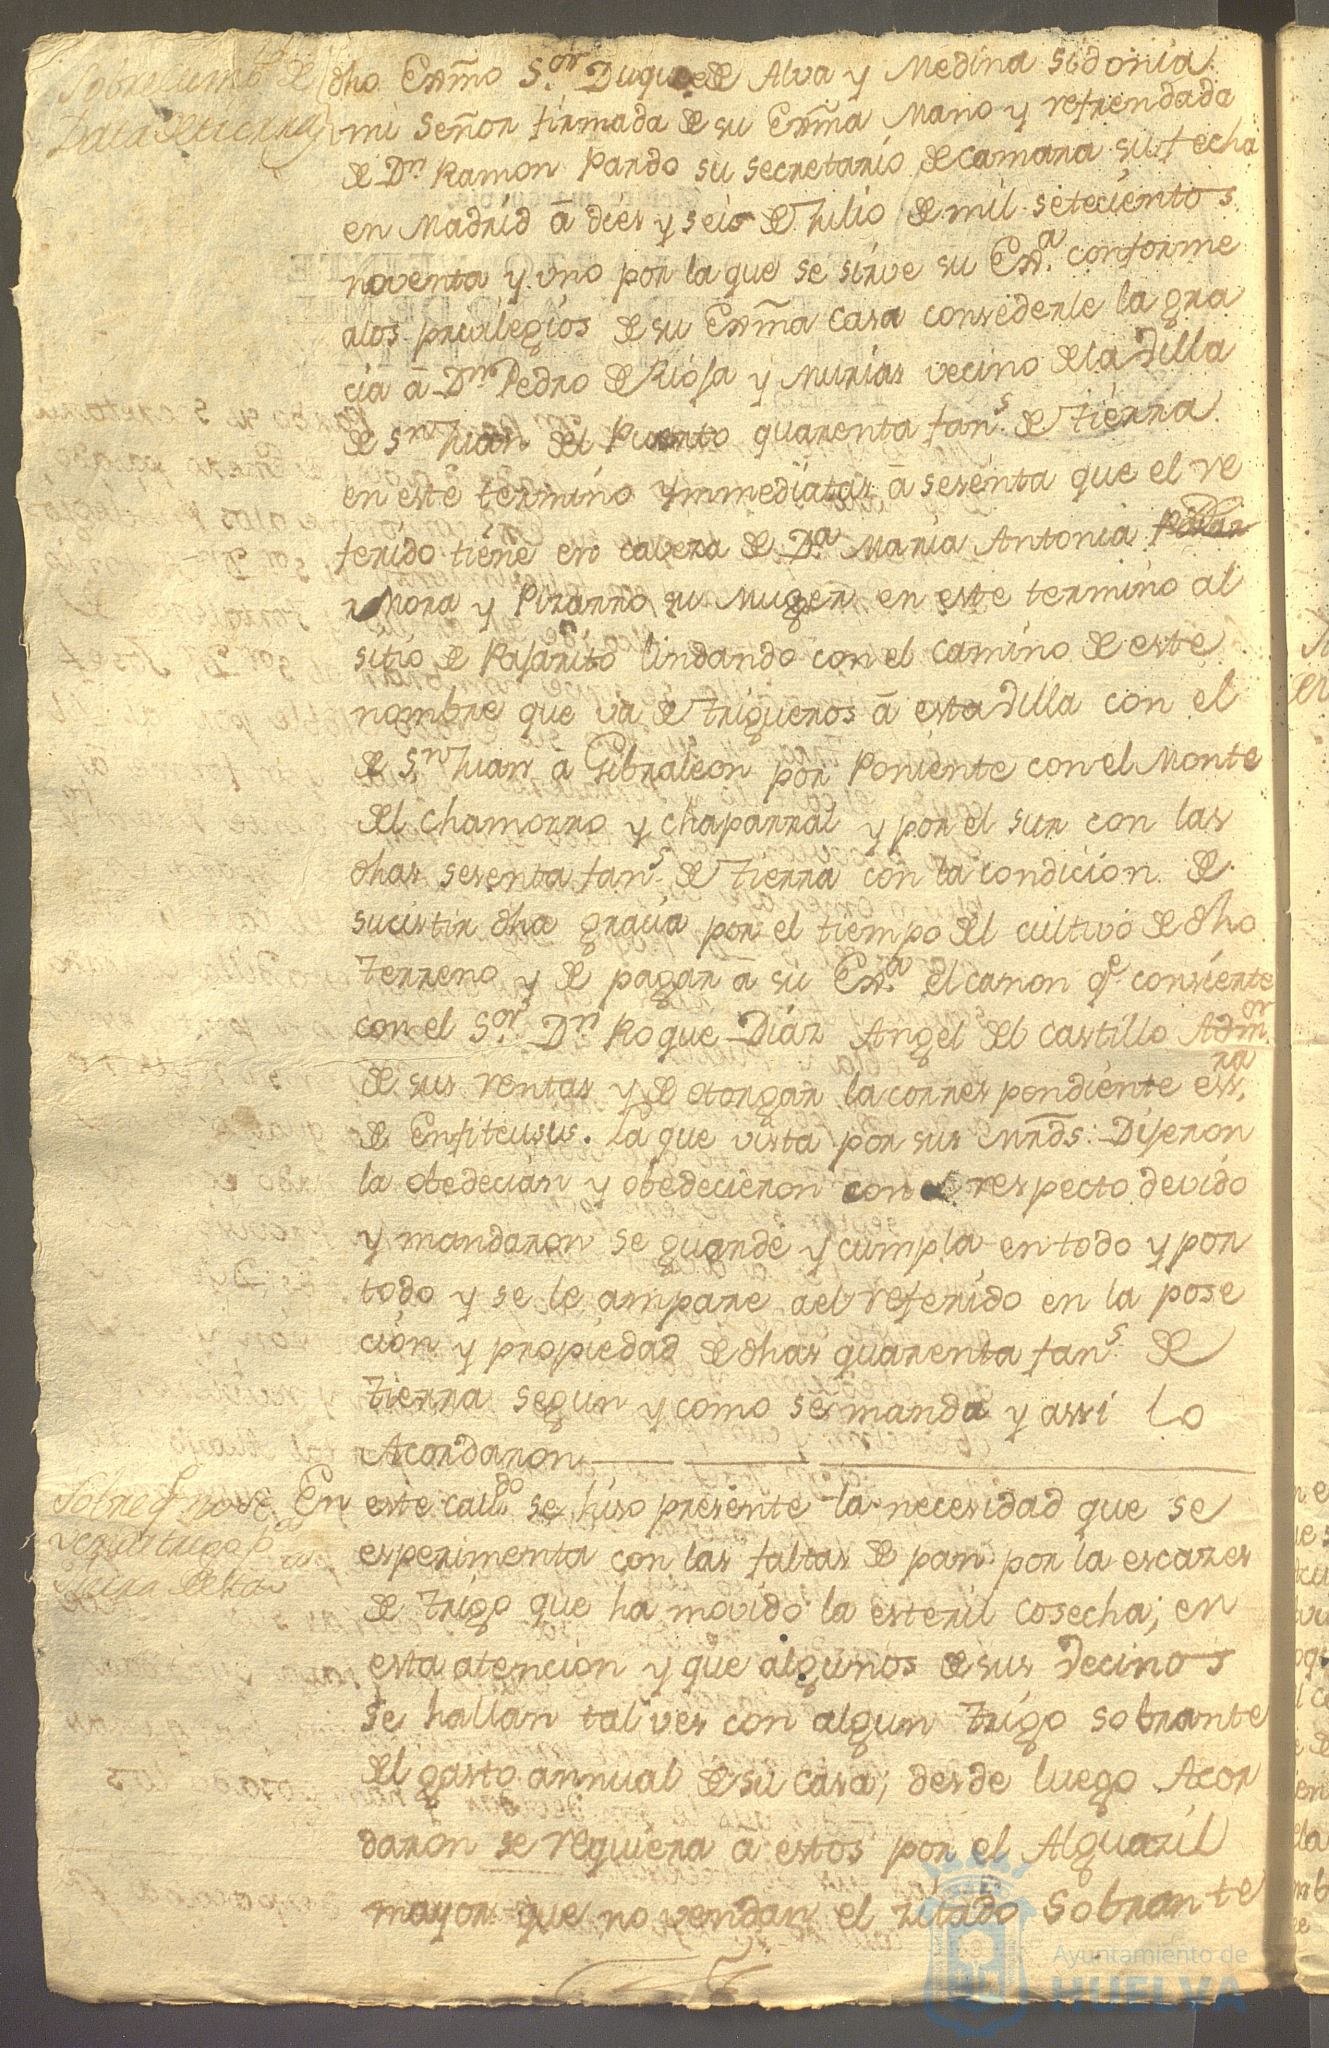 Sobre cump.to de
Data de tierra
dho Exm̃o S.or Duque de Alva y Medina Sidonia
mi Señor firmada de su Exm̃a Mano y refrendada
de Dn Ramon Pardo su secretario de camara su fecha
en Madrid â dies y seis de Julio de mil setecientos
noventa y uno por la que se sirve su Ex.a conforme
alos privilegios de su Exm̃a casa consederle la gra
cia â Dn Pedro de Riosa y Murias vecino de la Villa
de Sn Juan del Puerto quarenta fan.s de tierra
en este termino ynmediatas â sesenta que el re
ferido tiene en cabeza de D.a Maria Antonia
Mora y Pizarro su Muger en este termino al
sitio de Pajarito lindando con el camino de este
nombre que va de Trigueros â esta Villa con el
de Sn Juan â Gibraleon por Poniente con el Monte
del chamorro y chaparral y por el sur con las
dhas sesenta fan.s de tierra con la condicion de
sucistir dha gracia por el tiempo del cultivo de dho
terreno y de pagar â su Ex.a el canon q.e consiente
con el S.or Dn Roque Diaz Angel del castillo Adm.or
de sus rentas y de otorgar la correspondiente ess.ra
de Enfiteusis. La que vista por sus Mrds: Dijeron
la obedecian y obedecieron con el respecto devido
y mandaron se guarde y cumpla en todo y por
todo y se le ampare ael referido en la pose
cion y propiedad de dhas quarenta fan.s de
tierra segun y como se manda y assi lo
Acordaron
Sobre q.e no se
venda trigo p.a
fuera de esta
En este cav.do se hiso presente la necesidad que se
esperimenta con las faltas de pan por la escases
de trigo que ha movido la esteril cosecha; en
esta atencion y que algunos de sus Vecinos
se hallan tal ves con algun trigo sobrante
del gasto annual de su casa; desde luego Acor
daron se requiera a estos por el Alguazil
mayor que no vendan el citado sobrante
Ayuntamiento de
HUELVA